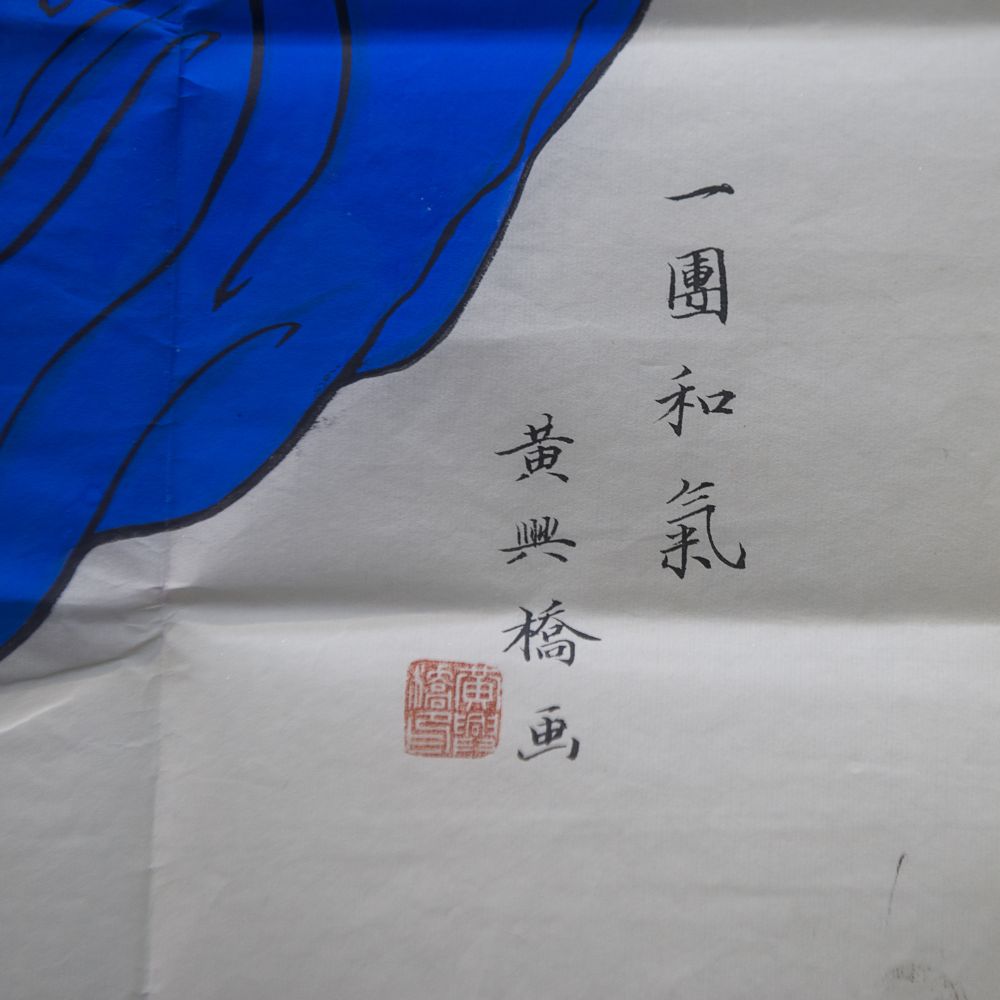 一團和氣
黃興橋画
黃興橋印